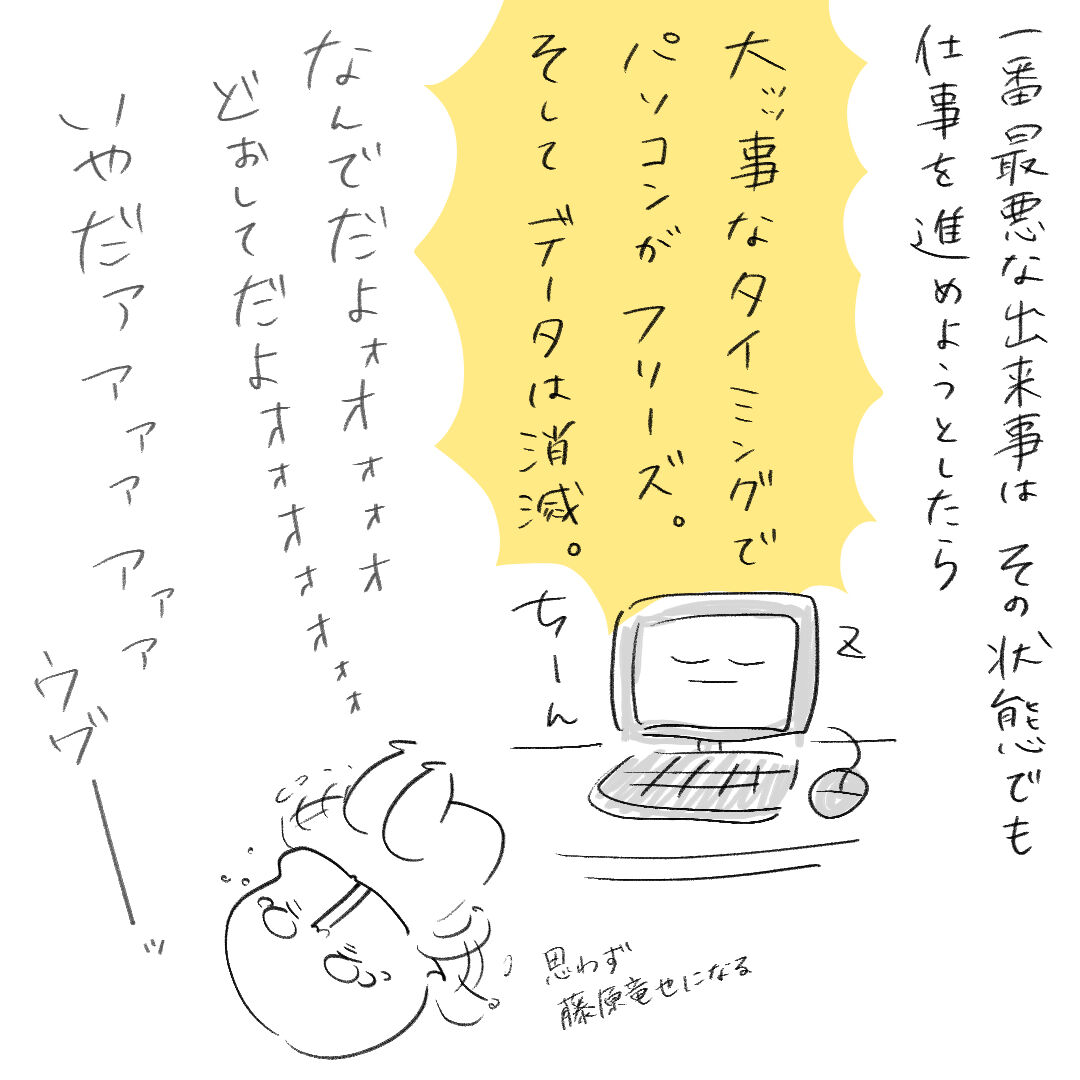 一番最悪な出来事は その状態でも
仕事を進めようとしたら
大ッ事なタイミングで
パソコンが フリーズ。
そして データは消滅。
ちーん
z
なんでだよォオォォオ
どおしてだよォォオォオォォ
いやだァアァァアァァ
ウヴーーッ
思わず
藤原竜也になる